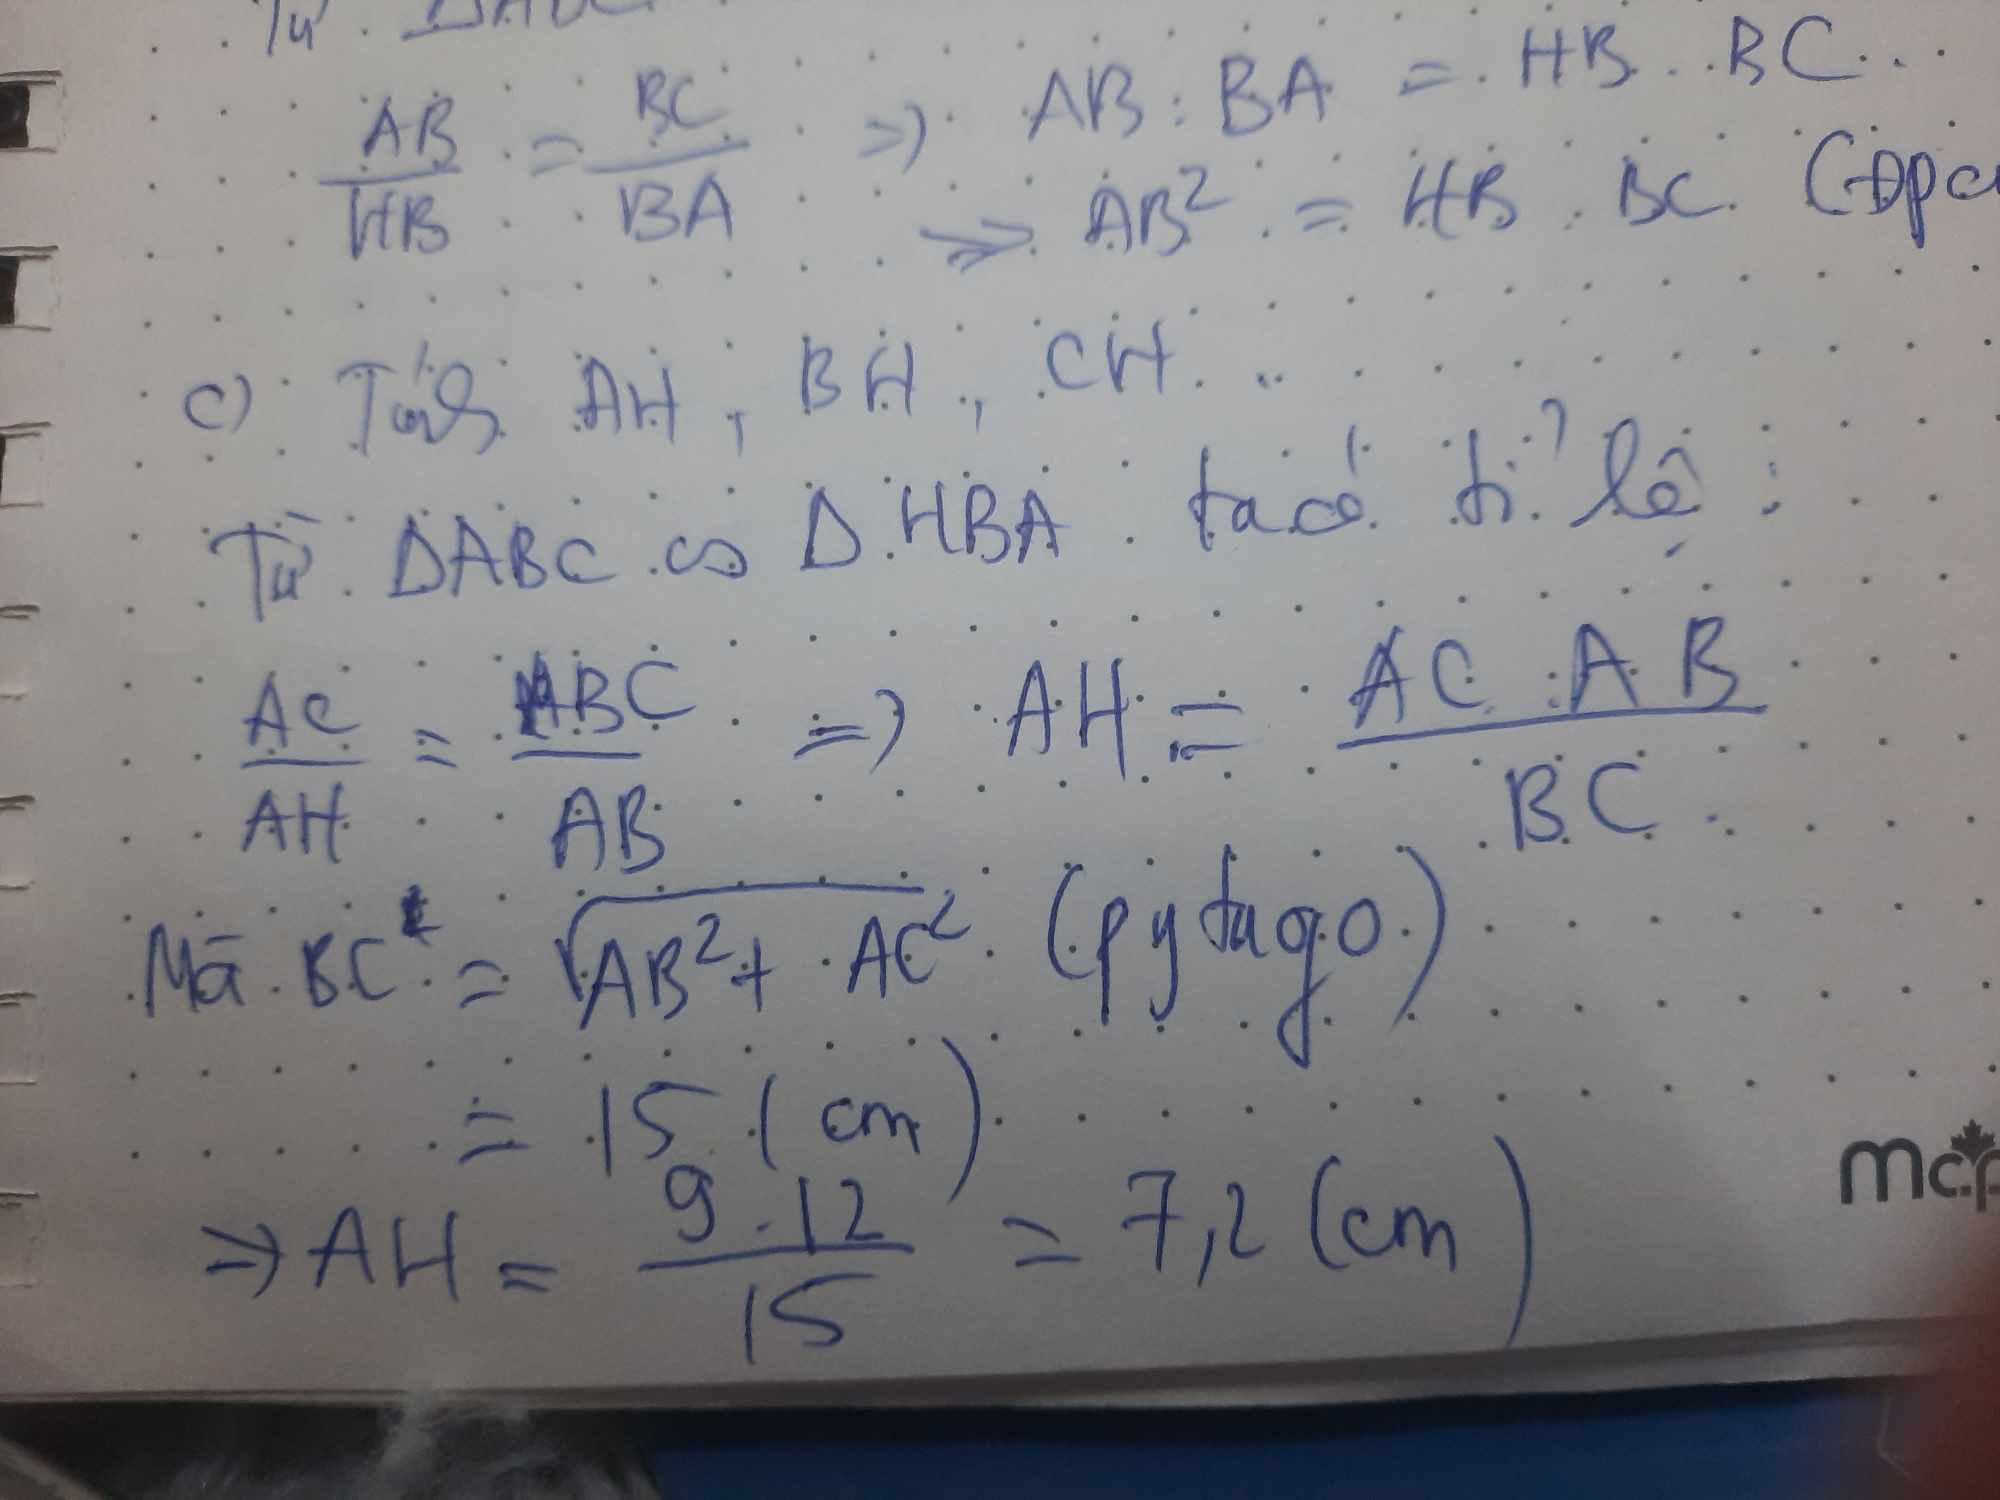 Từ ΔABC
AB/HB = BC/BA => AB . BA = HB . BC
=> AB² = HB . BC (Đpc
c) Tính AH, BH, CH.
Từ ΔABC ∽ ΔHBA ta có tỉ lệ :
AC/AH = BC/AB => AH = AC . AB/BC
Mà BC = √AB² + AC² (pytago)
= 15 (cm)
=> AH = 9 . 12/15 = 7,2 (cm)